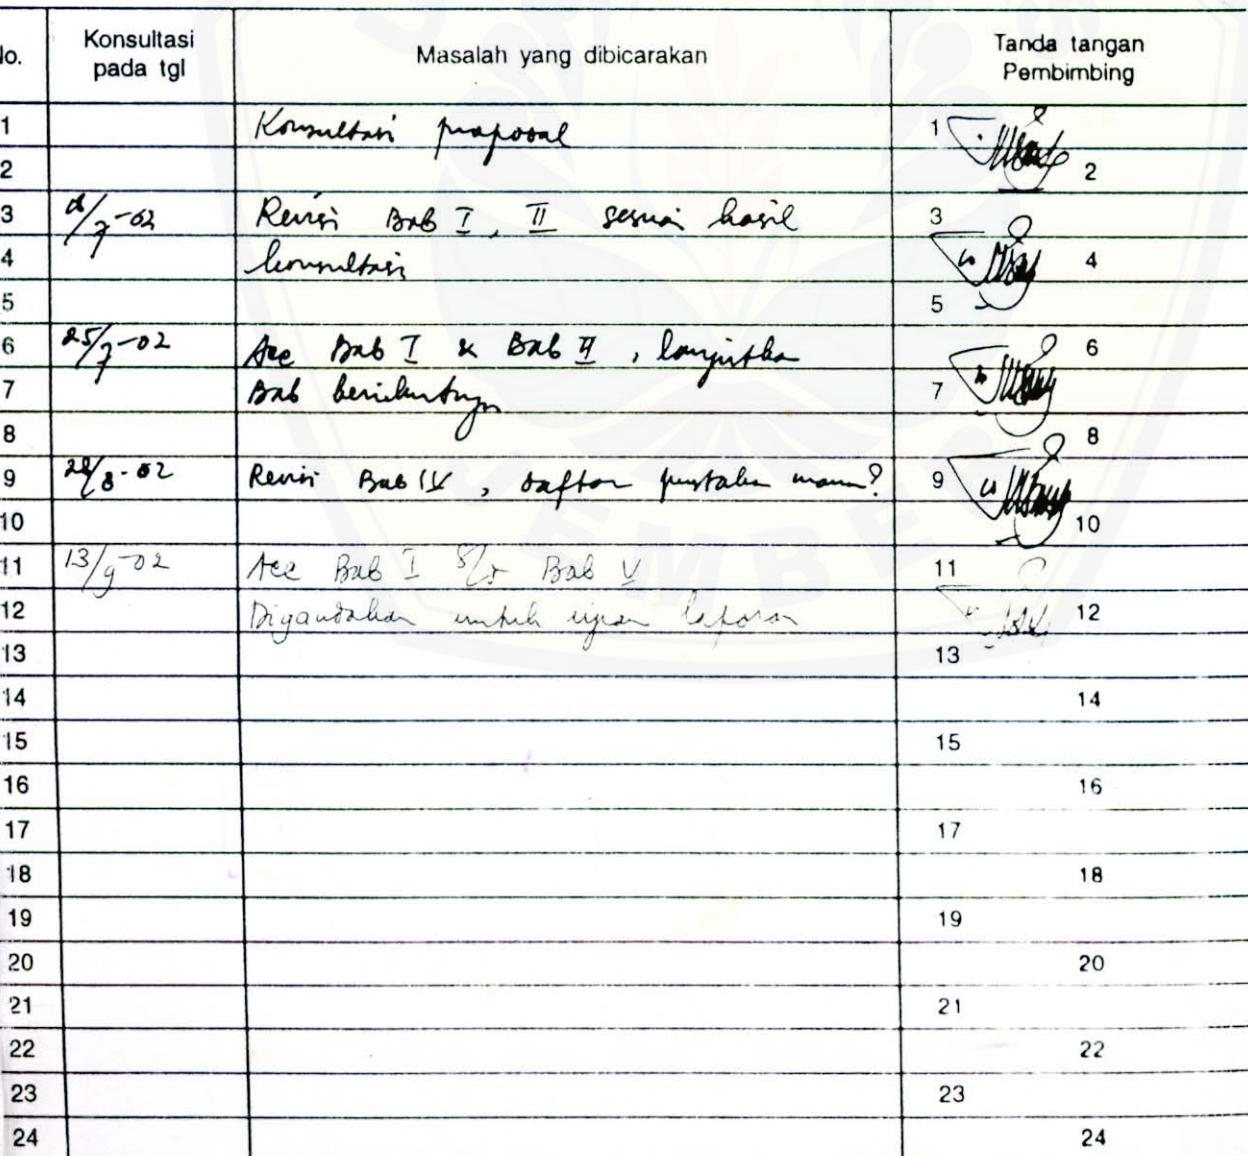 No. Konsultasi pada tgl Masalah yang dibicarakan Tanda tangan Pembimbing
1 Konsultasi proposal 1
2 2
3 /7-02 Revisi Bab I, II sesuai hasil 3
4 konsultasi 4
5 5
6 25/7-02 Acc Bab I & Bab II, lanjutkan 6
7 Bab berikutnya 7
8 8
9 28/8-02 Revisi Bab IV, daftar pustaka mana? 9
10 10
11 13/9-02 Acc Bab I s/d Bab V 11
12 Digandakan untuk ujian laporan 12
13 13
14 14
15 15
16 16
17 17
18 18
19 19
20 20
21 21
22 22
23 23
24 24
JEMBER